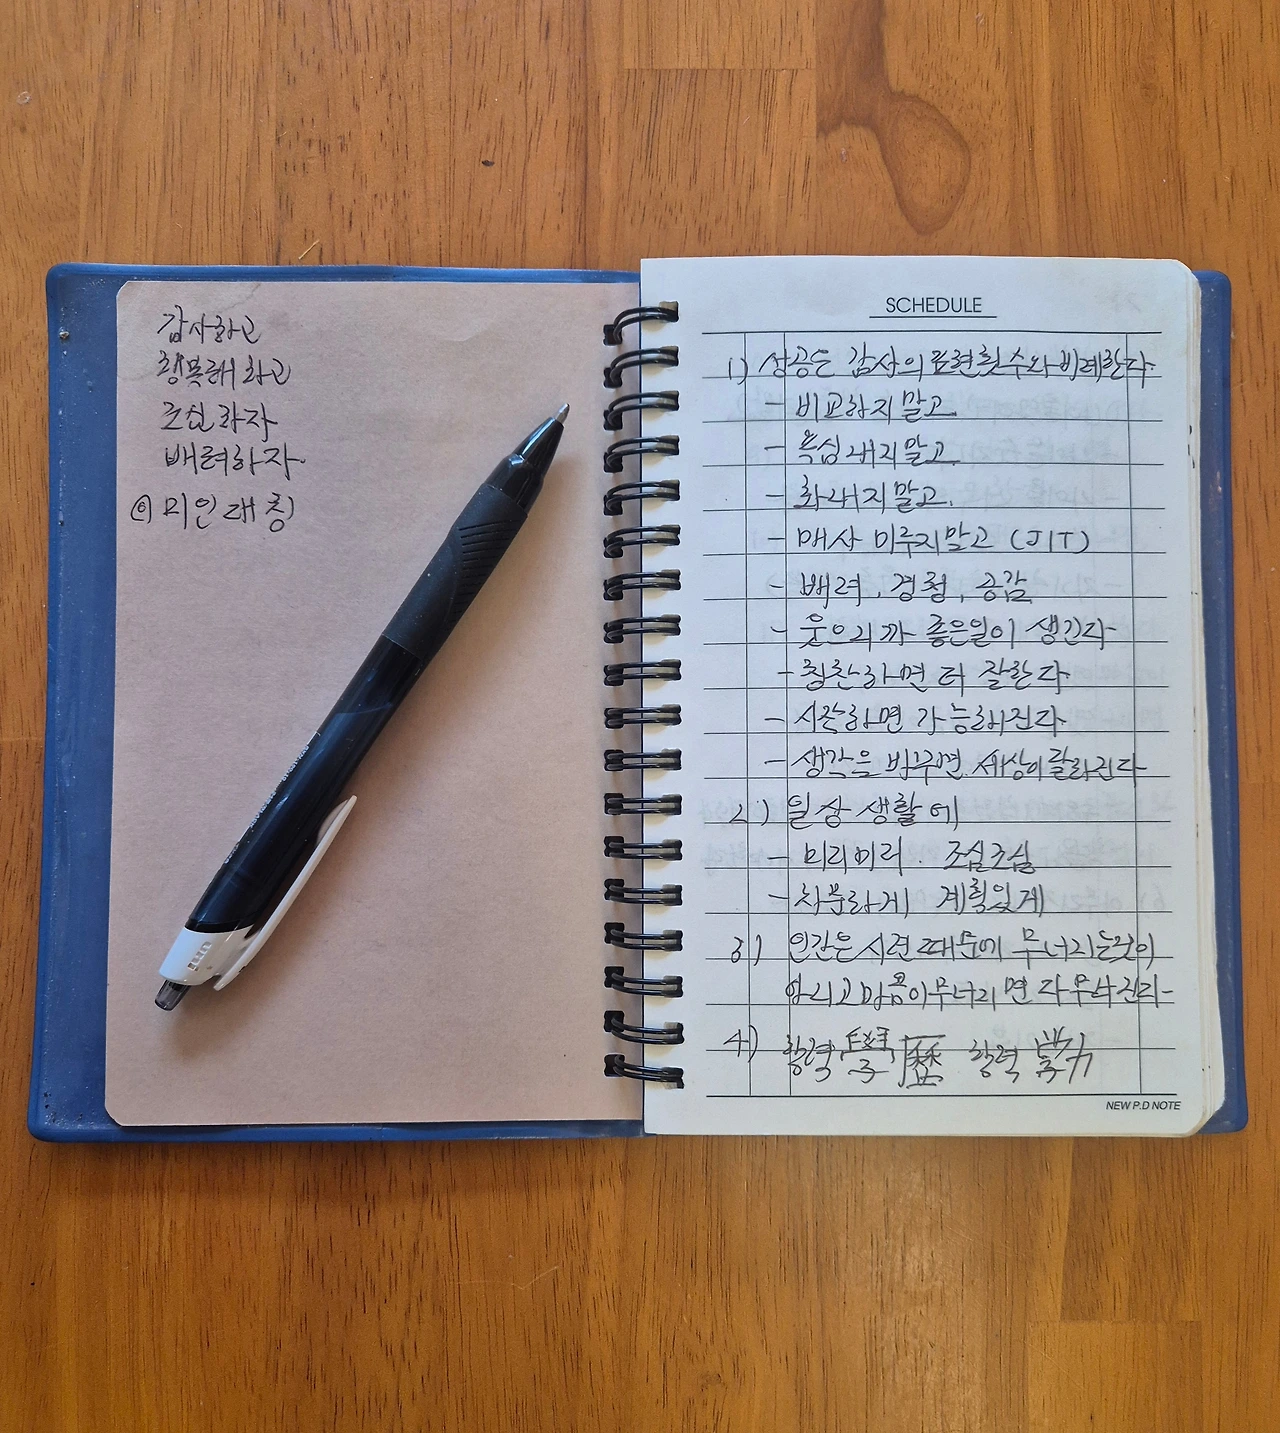 감사하고
행복해하고
조심하자
배려하자.
미인대칭
SCHEDULE
1) 성공은 감사의 표현횟수와 비례한다.
- 비교하지말고.
- 욕심내지말고.
- 화내지말고.
- 매사 미루지말고 (JIT)
- 배려, 경청, 공감
- 웃으니까 좋은일이 생긴다
- 칭찬하면 더 잘한다
- 시작하면 가능해진다
- 생각을 바꾸면 세상이 달라진다
2) 일상생활에
- 미리미리. 조심조심
- 차분하게 계획있게
3) 인간은 시련때문에 무너지는것이
아니고 마음이무너지면 다무너진다-
4) 학력 學歷 학력 學力
NEW P.D NOTE